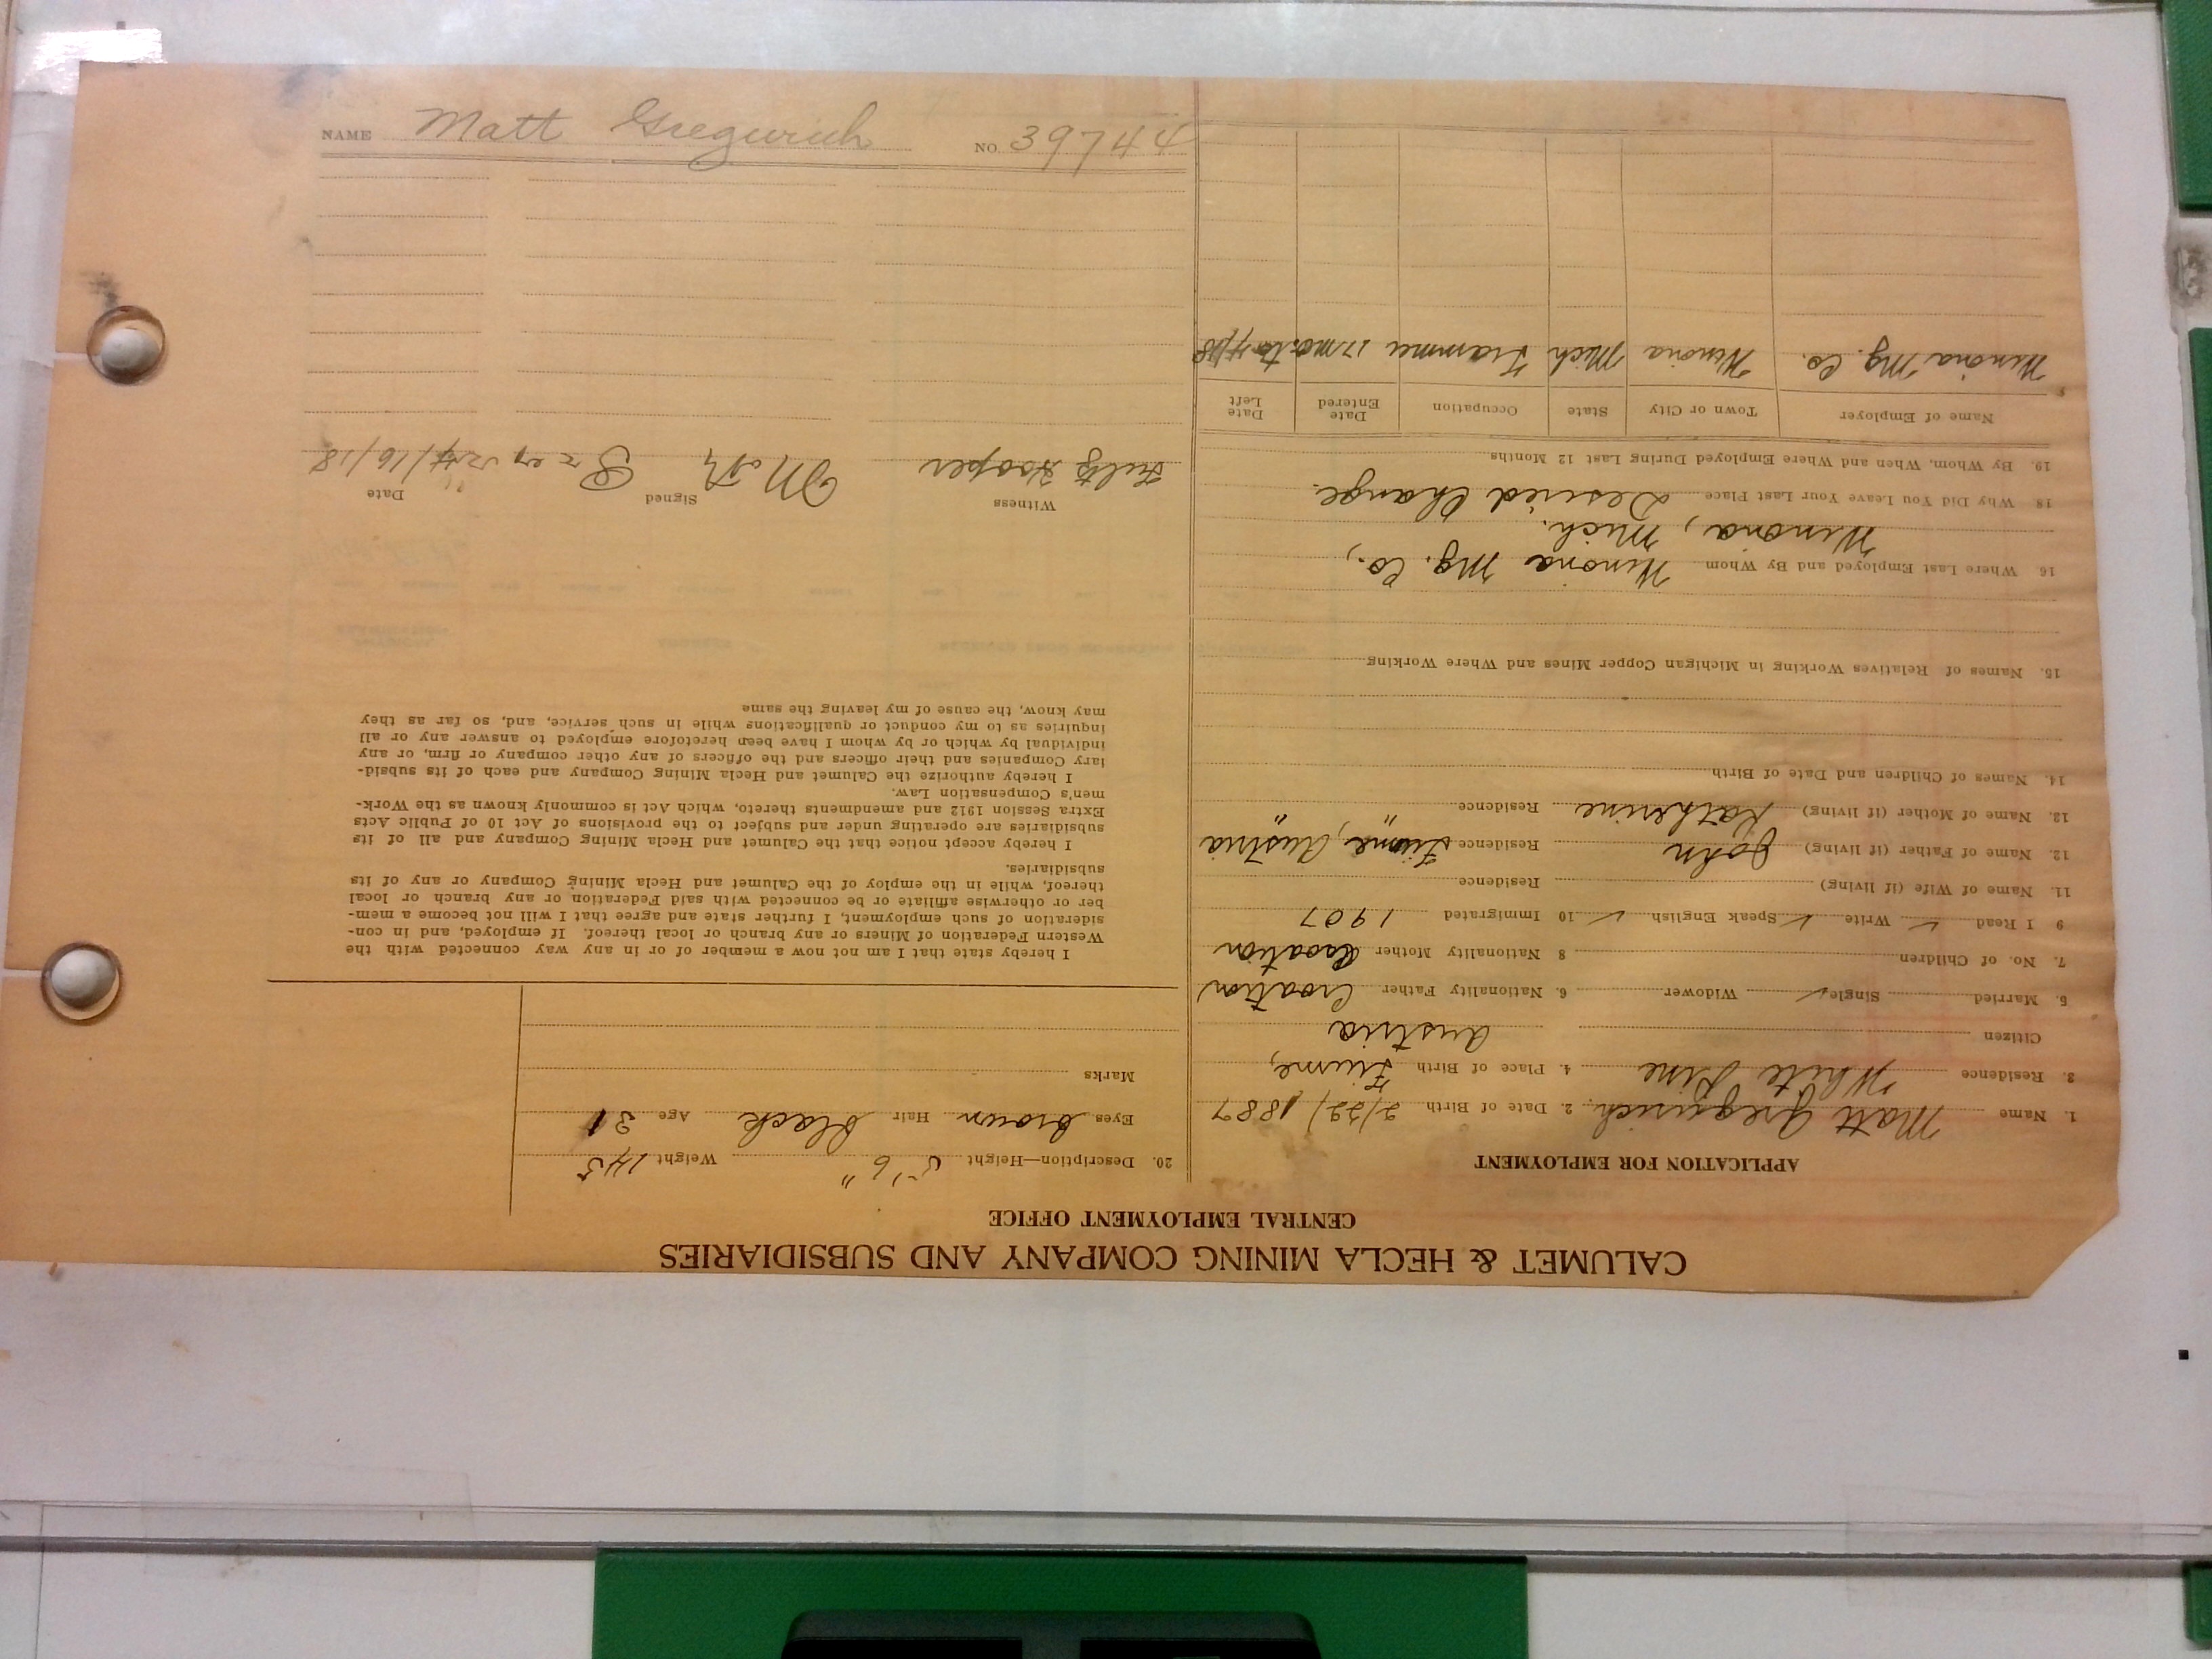 CALUMET & HECLA MINING COMPANY AND SUBSIDIARIES
CENTRAL EMPLOYMENT OFFICE
APPLICATION FOR EMPLOYMENT
1. Name Matt Gregurich 2. Date of Birth 2/22/1887
3. Residence White Pine 4. Place of Birth Fiume,
Citizen Austria
5. Married Single ✓ Widower 6. Nationality Father Croatian
7. No. of Children 8 Nationality Mother Croatian
9 I Read ✓ Write ✓ Speak English ✓ 10 Immigrated 1907
11. Name of Wife (if living) Residence
12. Name of Father (if living) John Residence Fiume, Austria
13. Name of Mother (if living) Katherine Residence " "
14. Names of Children and Date of Birth
15. Names of Relatives Working in Michigan Copper Mines and Where Working
16 Where Last Employed and By Whom Winona Mg. Co.,
Winona, Mich.
18. Why Did You Leave Your Last Place Desired Change.
19. By Whom, When and Where Employed During Last 12 Months
Name of Employer Town or City State Occupation Date Entered Date Left
Winona Mg. Co. Winona Mich Trammer 17 mo. to 4/18
20. Description—Height 5'6" Weight 145
Eyes brown Hair black Age 31
Marks
I hereby state that I am not now a member of or in any way connected with the
Western Federation of Miners or any branch or local thereof. If employed, and in con-
sideration of such employment, I further state and agree that I will not become a mem-
ber or otherwise affiliate or be connected with said Federation or any branch or local
thereof, while in the employ of the Calumet and Hecla Mining Company or any of its
subsidiaries.
I hereby accept notice that the Calumet and Hecla Mining Company and all of its
subsidiaries are operating under and subject to the provisions of Act 10 of Public Acts
Extra Session 1912 and amendments thereto, which Act is commonly known as the Work-
men's Compensation Law.
I hereby authorize the Calumet and Hecla Mining Company and each of its subsid-
iary Companies and their officers and the officers of any other company or firm, or any
individual by which or by whom I have been heretofore employed to answer any or all
inquiries as to my conduct or qualifications while in such service, and, so far as they
may know, the cause of my leaving the same
Witness Signed Date
Hooper 4/16/18
NAME Matt Gregurich NO. 39744